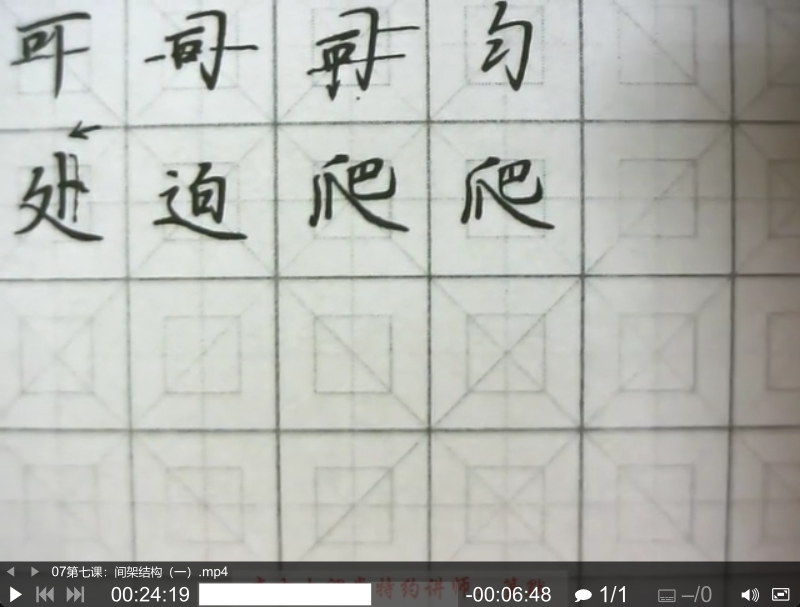 可 司 司 匀
处 迫 爬 爬
07第七课：间架结构（一）.mp4
00:24:19 -00:06:48 1/1 –/0